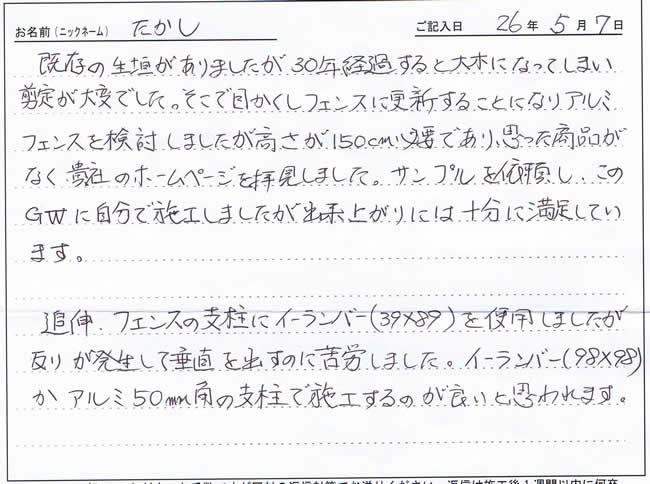 お名前(ニックネーム) たかし ご記入日 26年 5月 7日
既存の生垣がありましたが30年経過すると大木になってしまい
剪定が大変でした。そこで目かくしフェンスに更新することになりアルミ
フェンスを検討しましたが高さが150cm必要であり、思った商品が
なく貴社のホームページを拝見しました。サンプルを依頼し、この
GWに自分で施工しましたが出来上がりには十分に満足してい
ます。
追伸.フェンスの支柱にイーランバー(39×89)を使用しましたが
反りが発生して垂直を出すのに苦労しました。イーランバー(98×98)
か アルミ50mm角の支柱で施工するのが良いと思われます。